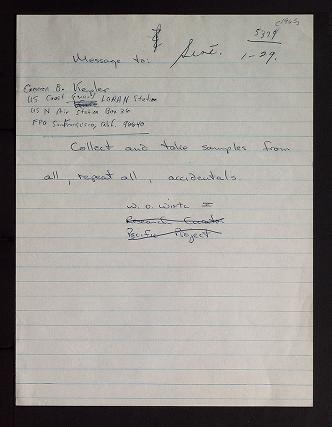 c1965
5379
Sent.
1-29.
Message to:
Cameron B. Kepler
US Coast Guard LORAN Station
US N Air Station Box 36
FPO San Francisco, Calif. 96640
Collect and take samples from
all, repeat all, accidentals.
W. O. Wirtz II
Research Curator
Pacific Project